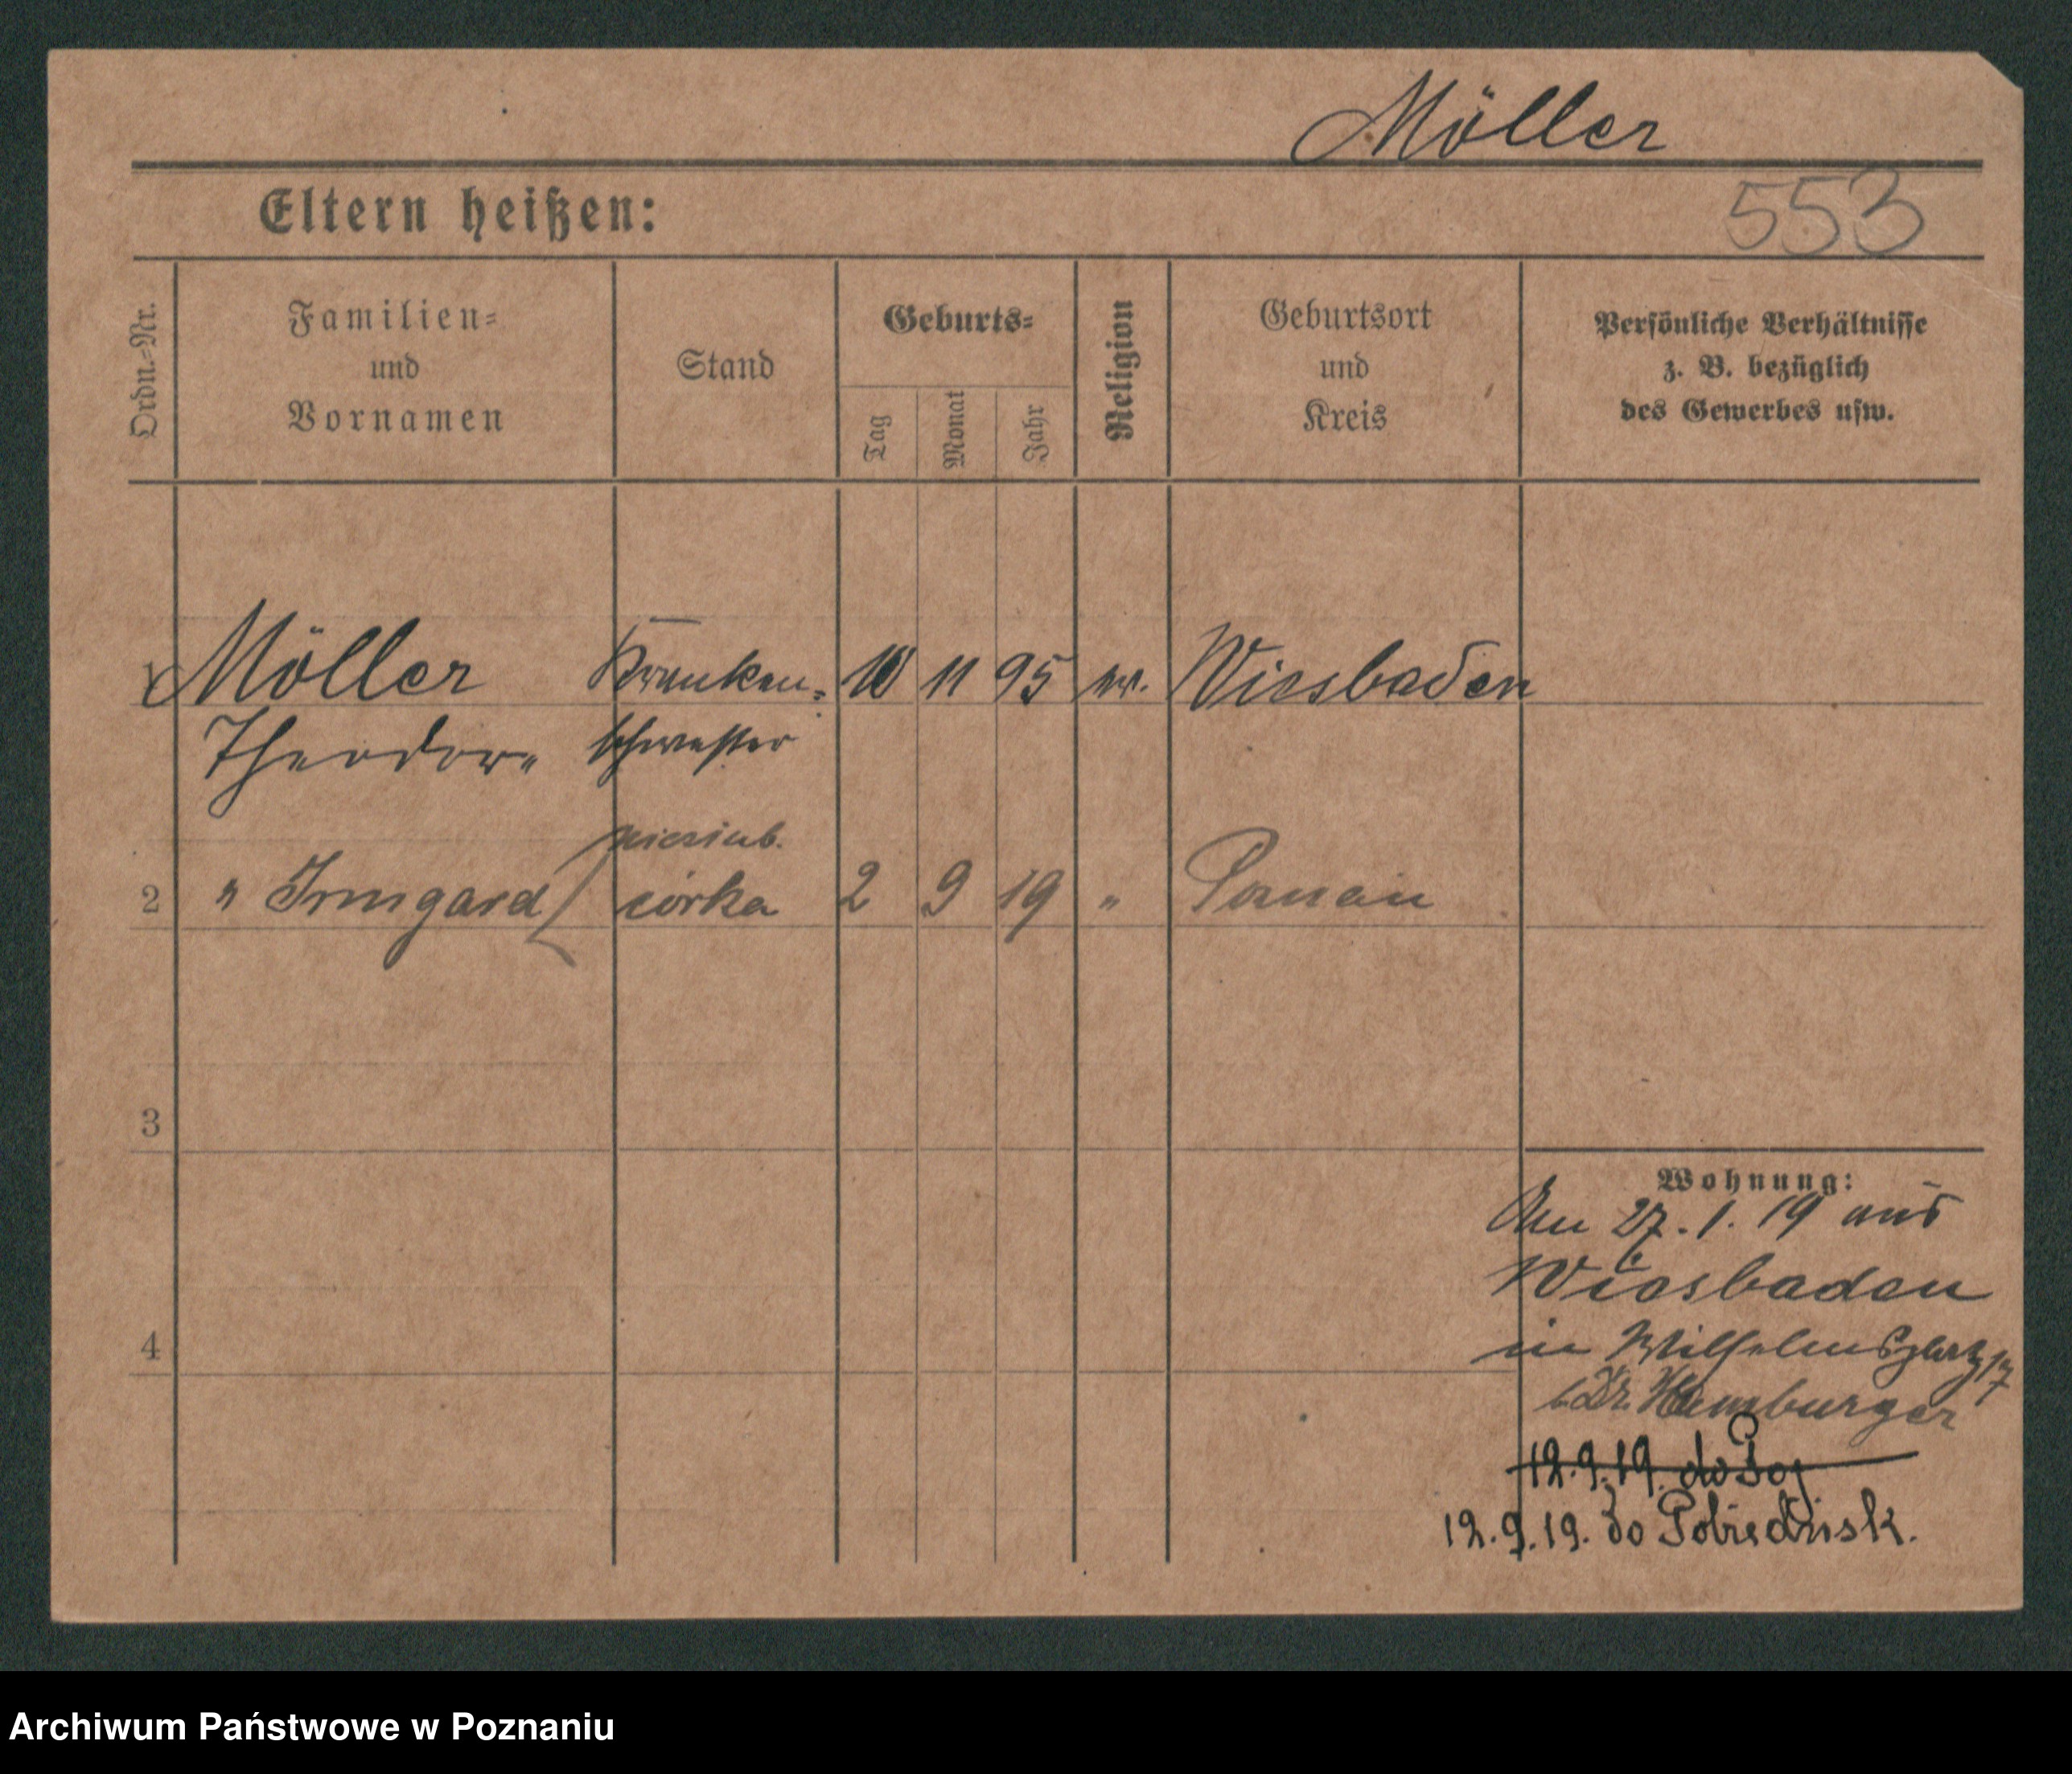 Möller
553
Eltern heißen:
Ordn.-Nr.
Familien-
und
Vornamen
Stand
Geburts-
Tag
Monat
Jahr
Religion
Geburtsort
und
Kreis
Persönliche Verhältnisse
z. B. bezüglich
des Gewerbes usw.
1 Möller Kranken- 10 11 95 ev. Wiesbaden
Theodore schwester
nieślub.
2 " Irmgard córka 2 9 19 " Poznań
3
4
Wohnung:
Am 27.1.19 aus
Wiesbaden
in Wilhelmsplatz 17
b. Dr. Hamburger
12.9.19. do
12.9.19. do Pobiedzisk.
Archiwum Państwowe w Poznaniu